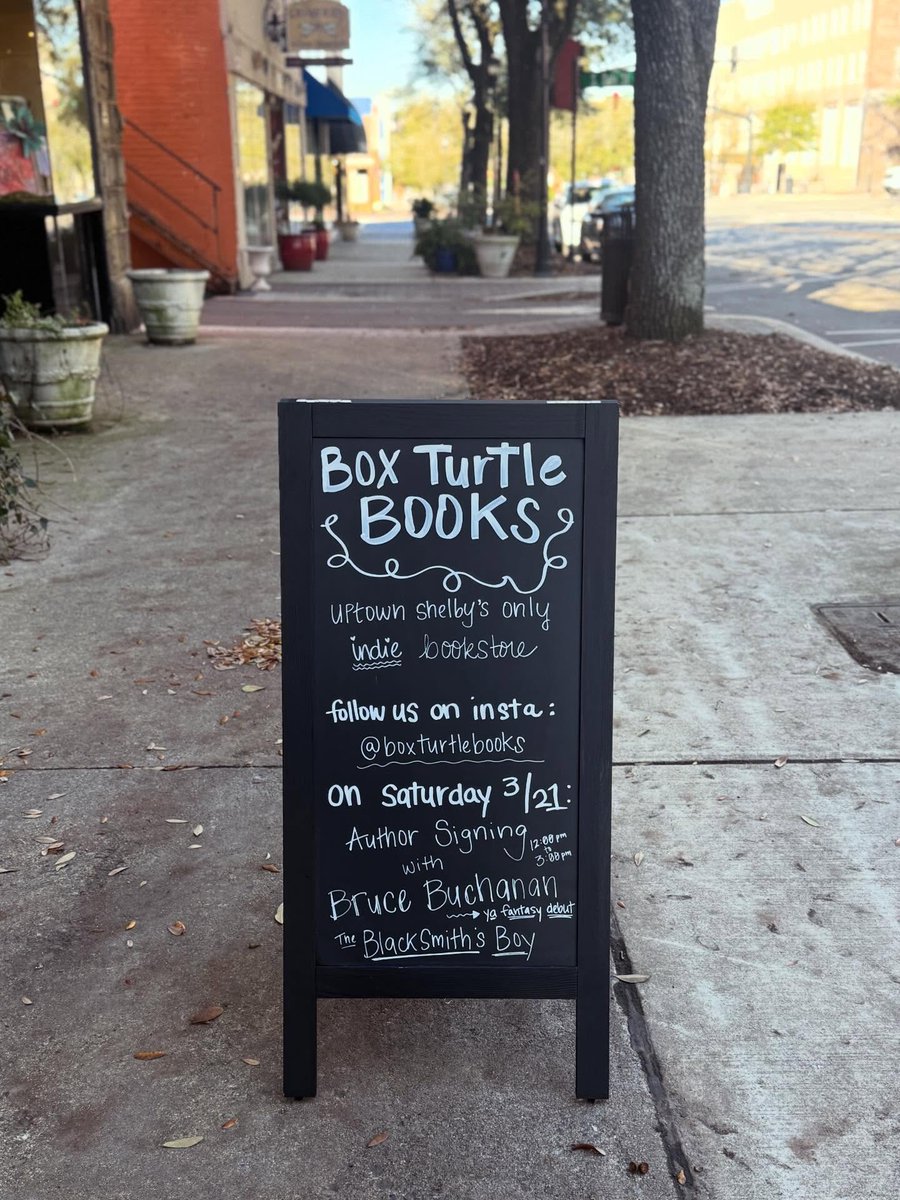 BOX TURTLE
BOOKS
uptown shelby's only
indie bookstore
follow us on insta:
@boxturtlebooks
on saturday 3/21:
Author Signing 12:00 pm to 3:00 pm
with
Bruce Buchanan
→ ya fantasy debut
The BlackSmith's Boy